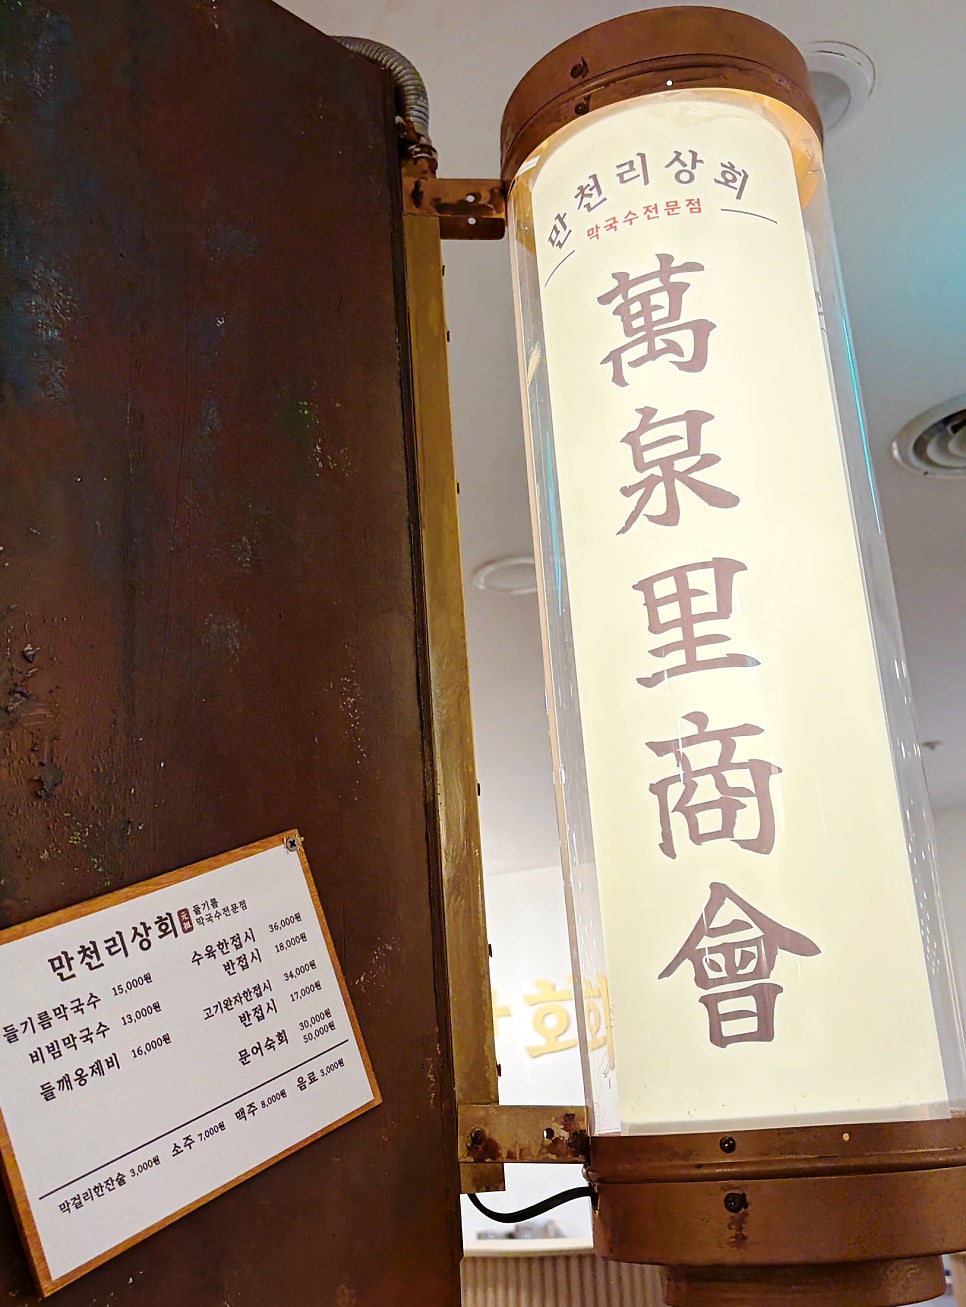 만천리상회
막국수전문점
萬
泉
里
商
會
만천리상회 元祖 들기름
막국수전문점
들기름막국수 15,000원
비빔막국수 13,000원
들깨옹제비 16,000원
수육한접시 36,000원
반접시 18,000원
고기완자한접시 34,000원
반접시 17,000원
문어숙회 30,000원
50,000원
막걸리한잔술 3,000원 소주 7,000원 맥주 8,000원 음료 3,000원
회